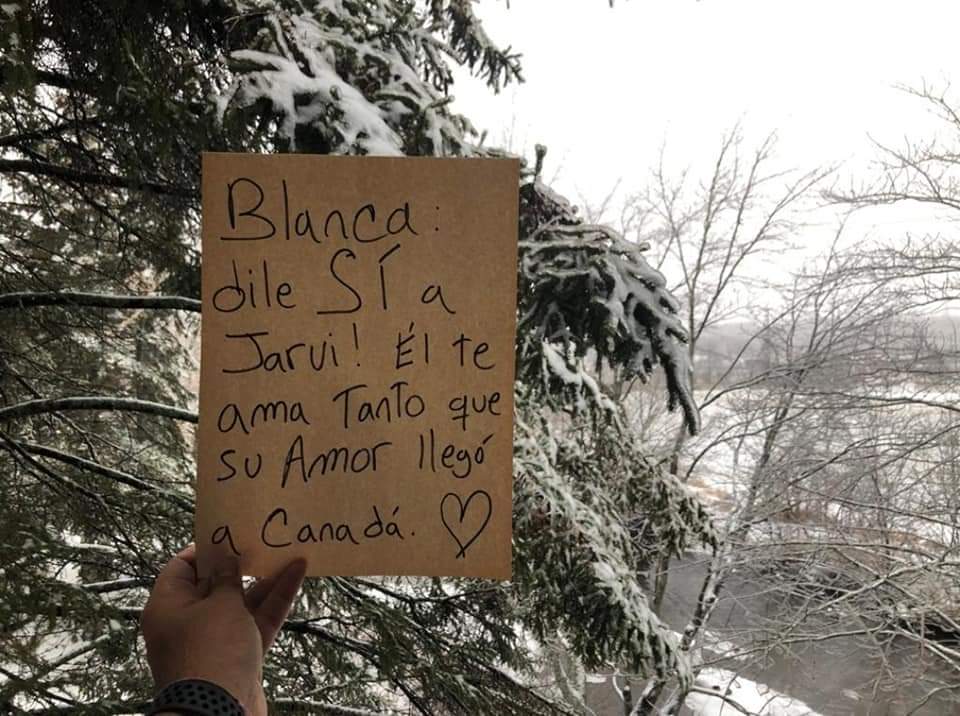 Blanca:
dile SÍ a
Jarvi! Él te
ama Tanto que
su Amor llegó
a Canadá. ♡